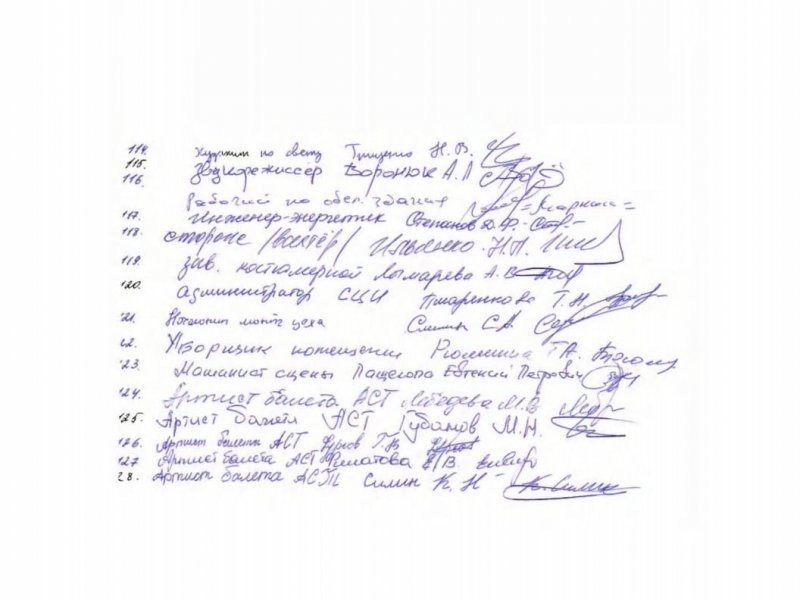 114. Худжник по свету Грищенко Н.В.
115. Звукорежиссёр Воронюк А.Л
116. Рабочий по обсл. здания
117. Инженер-энергетик Степанов Д.Ф.
118. стороне /вахтёр/ Ильенко Н.П.
119. зав. костюмерной Лымарева А.В
120. администратор СЦИ Т.Н.
21. монт. цеха С.А.
22. Уборщик помещений Т.А.
123. Машинист сцены Пащелопа Евгений Петрович
124. Артист балета АСТ Лебедева М.В
125. Артист балета АСТ Губанов М.Н.
126. Артист балета АСТ
127 Артист балета АСТ Филатова Е.В.
28. Артист балета АСТ Силин К.Н